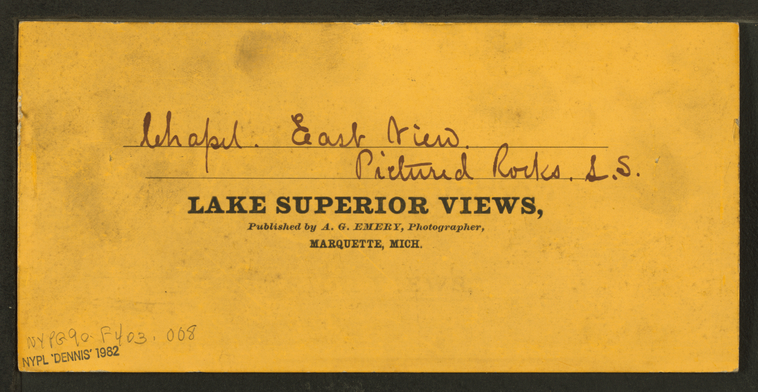 Chapel. East View.
Pictured Rocks. L.S.
LAKE SUPERIOR VIEWS,
Published by A. G. EMERY, Photographer,
MARQUETTE, MICH.
NYPG90-F403.008
NYPL 'DENNIS' 1982